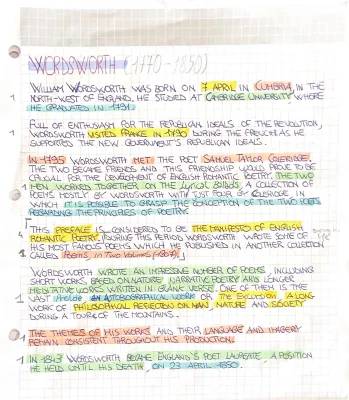 WORDSWORTH (1770-1850)
WILLIAM WORDSWORTH WAS BORN ON 7 APRIL IN CUMBRIA, IN THE
NORTH-WEST OF ENGLAND. HE STUDIED AT CAMBRIDGE UNIVERSITY WHERE
HE GRADUATED IN 1791.
FULL OF ENTHUSIASM FOR THE REPUBLICAN IDEALS OF THE REVOLUTION,
WORDSWORTH VISITED FRANCE IN 1790 DURING THE FRENCH AS HE
SUPPORTED THE NEW GOVERNMENT'S REPUBLICAN IDEALS.
IN 1795 WORDSWORTH MET THE POET SAMUEL TAYLOR COLERIDGE.
THE TWO BECAME FRIENDS AND THIS FRIENDSHIP WOULD PROVE TO BE
CRUCIAL FOR THE DEVELOPMENT OF ENGLISH ROMANTIC POETRY. THE TWO
MEN WORKED TOGETHER ON THE Lyrical Ballads, A COLLECTION OF
POEMS MOSTLY BY WORDSWORTH WITH JUST FOUR BY COLERIDGE IN
WHICH IT IS POSSIBLE TO GRASP THE CONCEPTION OF THE TWO POETS
REGARDING THE PRINCIPLES OF POETRY.
THIS PREFACE IS CONSIDERED TO BE THE MANIFESTO OF ENGLISH
ROMANTIC POETRY. DURING THIS PERIOD WORDSWORTH WROTE SOME OF
HIS MOST FAMOUS POEMS WHICH HE PUBLISHED IN ANOTHER COLLECTION
CALLED Poems in Two Volumes (1807)
WORDSWORTH WROTE AN IMPRESSIVE NUMBER OF POEMS, INCLUDING
SHORT WORKS BASED ON NATURE NARRATIVE POETRY AND LONGER
MEDITATIVE WORKS WRITTEN IN BLANK VERSE. ONE OF THEM IS THE
VAST Prelude AN AUTOBIOGRAPHICAL WORK OR The Excursion A LONG
WORK OF PHILOSOPHICAL REFLECTIONS ON MAN, NATURE AND SOCIETY
DURING A TOUR OF THE MOUNTAINS.
THE THEMES OF HIS WORKS AND THEIR LANGUAGE AND IMAGERY
REMAIN CONSISTENT THROUGHOUT HIS PRODUCTION.
IN 1843 WORDSWORTH BECAME ENGLAND'S POET LAUREATE A POSITION
HE HELD UNTIL HIS DEATH, ON 23 APRIL 1850.